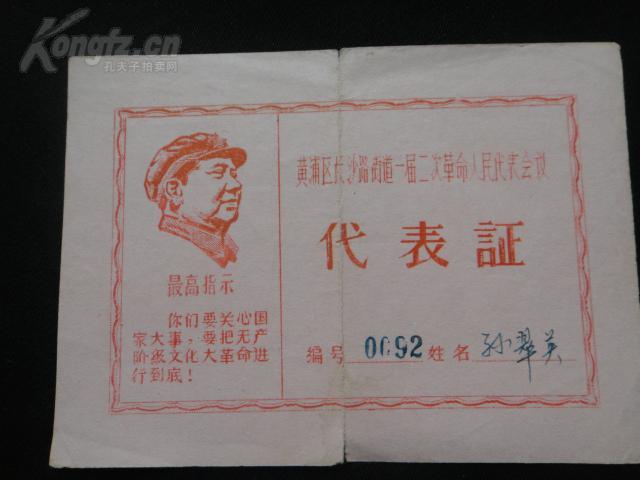 Kongfz.cn
孔夫子拍卖网
最高指示
你们要关心国
家大事，要把无产
阶级文化大革命进
行到底！
黄浦区长沙路街道一届二次革命人民代表会议
代表証
编号 0092 姓名 孙翠英